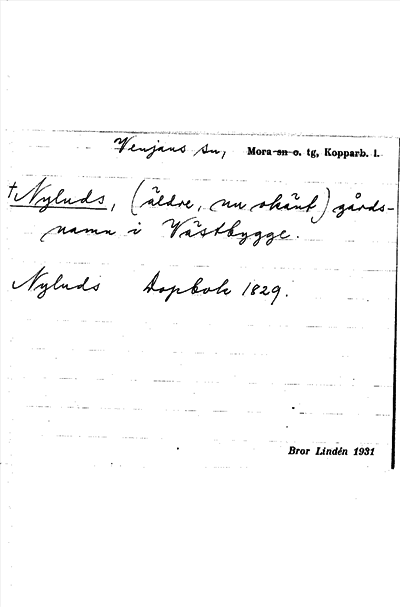 Venjans sn, Mora sn o. tg, Kopparb. l.
†Nyluds, (äldre, nu okänt) gårds-
namn i Västbygge.
Nyluds Dopbok 1829.
Bror Lindén 1931